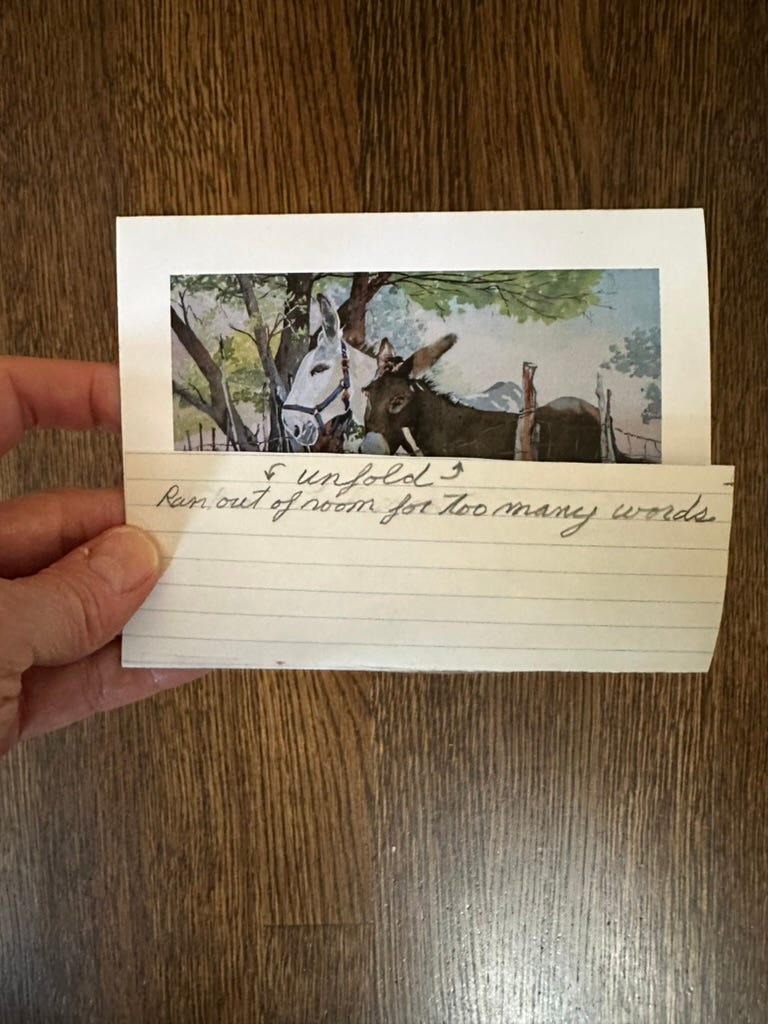 ↙ unfold ⤴
Ran out of room for too many words.